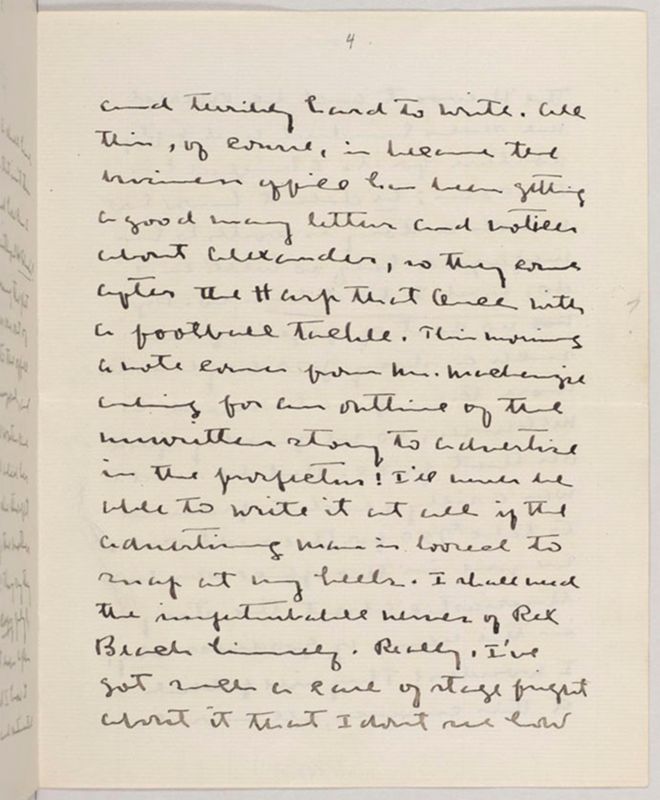 4
and terribly hard to write. All
this, of course, is because the
business office has been getting
a good many letters and notices
about Alexander, so they come
after the Harp that Once with
a football tackle. This morning
a note comes from Mr. Mackenzie
asking for an outline of the
unwritten story to advertise
in the prospectus! I'll never be
able to write it at all if the
advertising man is loosed to
snap at my heels. I shall need
the imperturbable nerves of Rex
Beach himself. Really, I've
got such a case of stage fright
about it that I don't see how